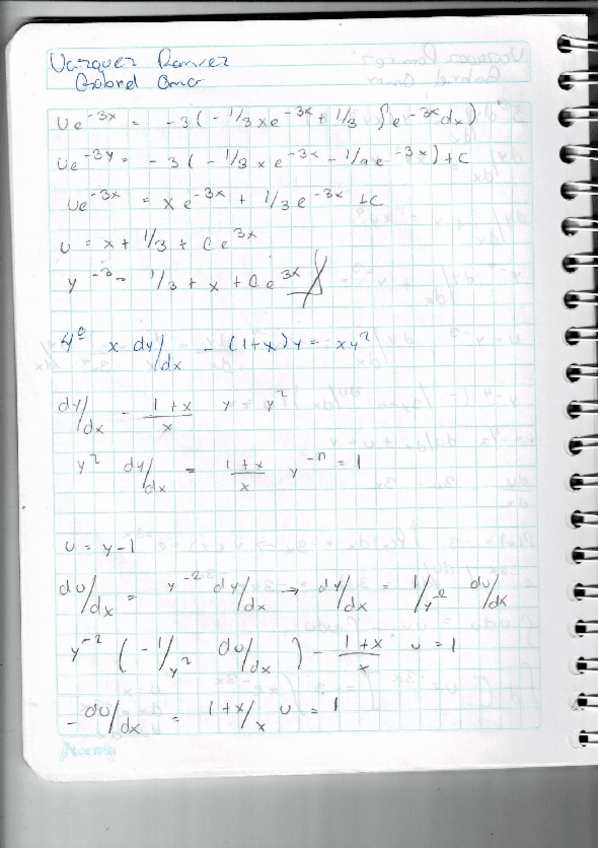 Vazquez Ramirez
Gabriel Omar
ue^-3x = -3(-1/3 xe^-3x + 1/3 ∫e^-3x dx)
ue^-3y = -3(-1/3 xe^-3x - 1/9e^-3x) + C
ue^-3x = xe^-3x + 1/3 e^-3x + C
u = x + 1/3 + Ce^3x
y^-3 = 1/3 + x + Ce^3x
4º x dy/dx - (1+x)y = xy^2
dy/dx - (1+x)/x y = y^2
y^2 dy/dx = (1+x)/x y^-n = 1
u = y-1
du/dx = y^-2 dy/dx → dy/dx = 1/y^-2 du/dx
y^-2 (-1/y^2 du/dx) - (1+x)/x u = 1
-du/dx = 1+x/x u = 1